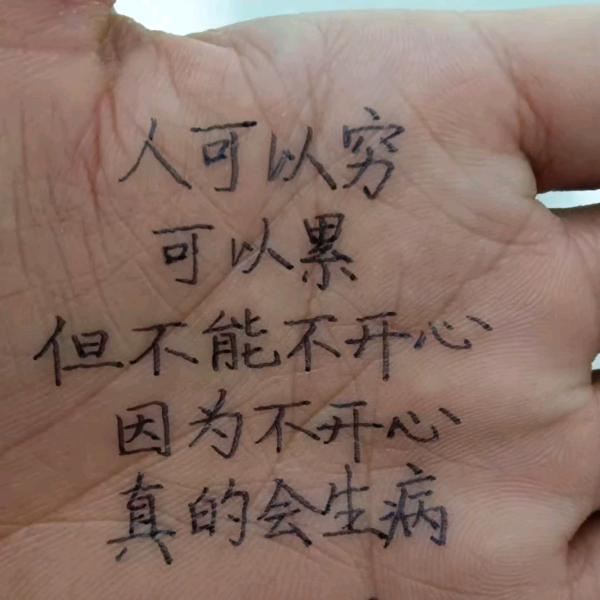 人可以穷
可以累
但不能不开心
因为不开心
真的会生病